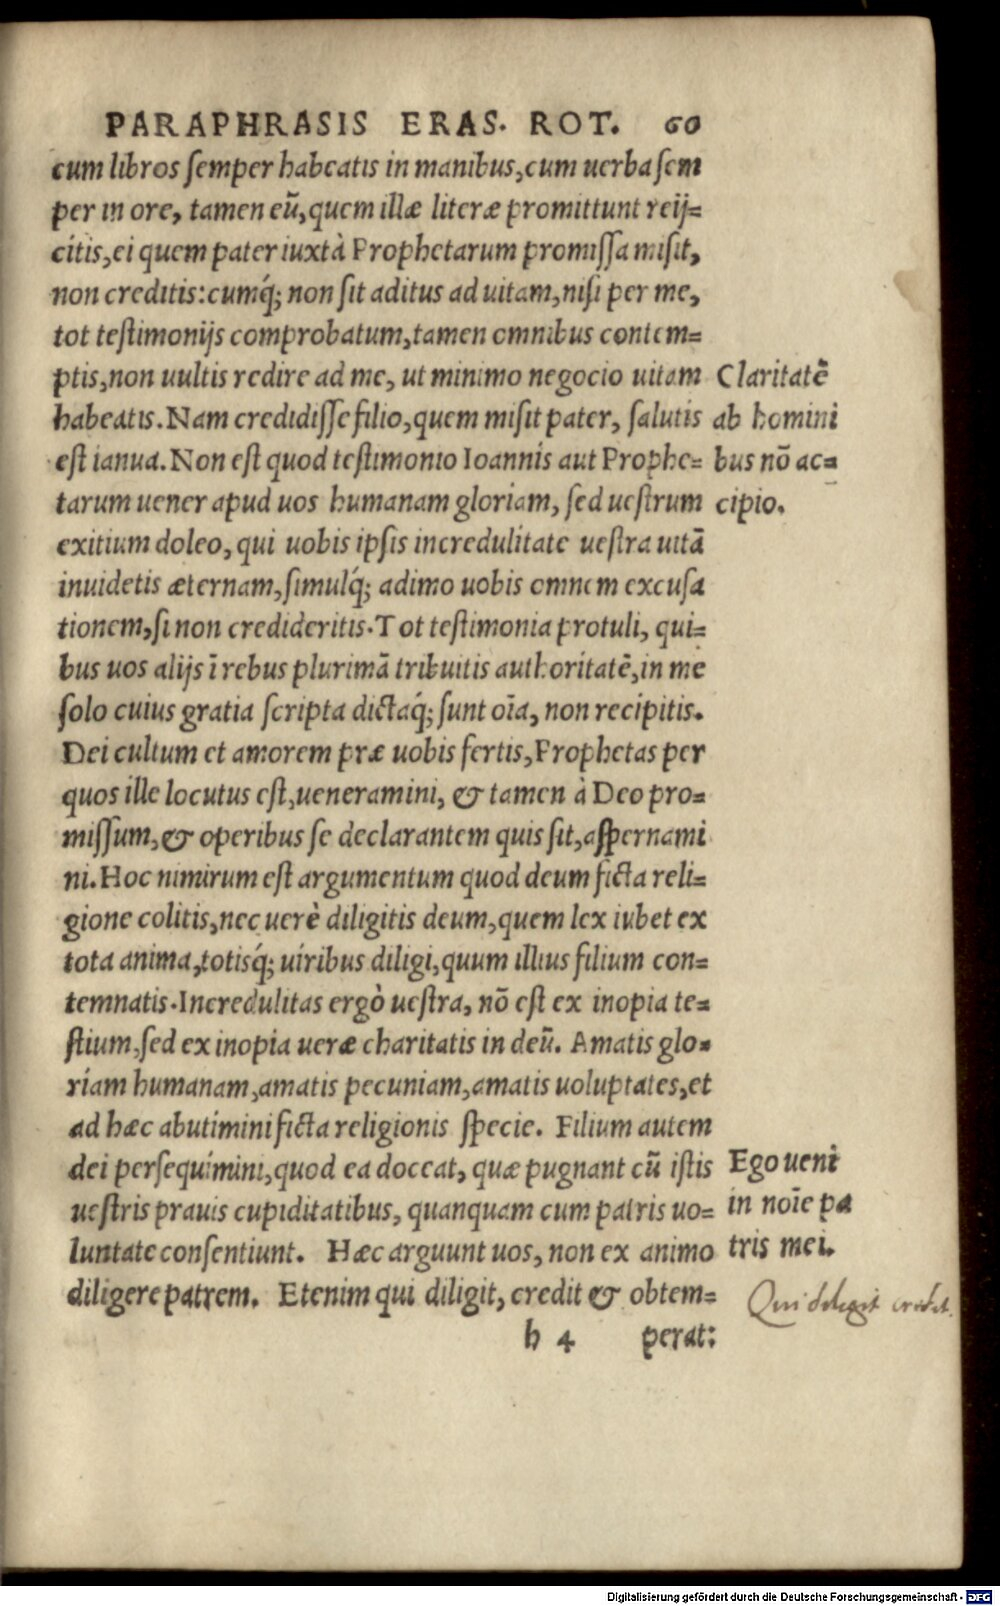 PARAPHRASIS ERAS. ROT. 60
cum libros semper habeatis in manibus,cum uerba sem
per in ore, tamen eũ,quem illæ literæ promittunt reij=
citis,ei quem pater iuxtà Prophetarum promissa misit,
non creditis:cumq́; non sit aditus ad uitam,nisi per me,
tot testimonijs comprobatum,tamen omnibus contem=
ptis,non uultis redire ad me, ut minimo negocio uitam
habeatis.Nam credidisse filio,quem misit pater, salutis
est ianua.Non est quod testimonio Ioannis aut Prophe=
tarum uener apud uos humanam gloriam, sed uestrum
exitium doleo, qui uobis ipsis incredulitate uestra uitã
inuidetis æternam,simulq́; adimo uobis omnem excusa
tionem,si non credideritis.Tot testimonia protuli, qui=
bus uos alijs ĩ rebus plurimã tribuitis authoritatẽ,in me
solo cuius gratia scripta dictaq́; sunt oĩa, non recipitis.
Dei cultum et amorem præ uobis fertis,Prophetas per
quos ille locutus est,ueneramini, & tamen à Deo pro=
missum,& operibus se declarantem quis sit,aspernami
ni.Hoc nimirum est argumentum quod deum ficta reli=
gione colitis,nec uerè diligitis deum,quem lex iubet ex
tota anima,totisq́; uiribus diligi,quum illius filium con=
temnatis.Incredulitas ergò uestra, nõ est ex inopia te=
stium,sed ex inopia ueræ charitatis in deũ. Amatis glo=
riam humanam,amatis pecuniam,amatis uoluptates,et
ad hæc abutimini ficta religionis specie. Filium autem
dei persequimini,quod ea doceat, quæ pugnant cũ istis
uestris prauis cupiditatibus, quanquam cum patris uo=
luntate consentiunt. Hæc arguunt uos, non ex animo
diligere patrem. Etenim qui diligit, credit & obtem=
h 4 perat:
Claritatẽ
ab homini
bus nõ ac=
cipio.
Ego ueni
in noĩe pa
tris mei.
Qui diligit credit.
Digitalisierung gefördert durch die Deutsche Forschungsgemeinschaft - DFG